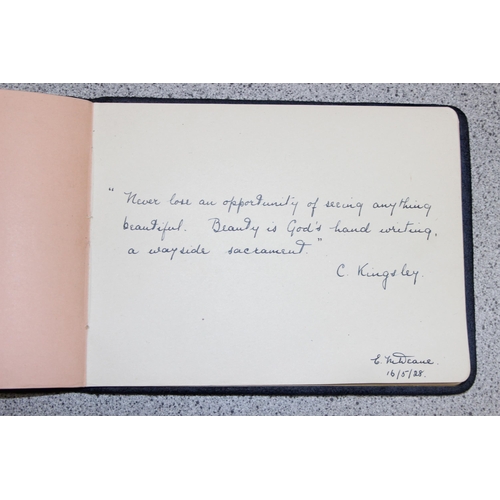 "Never lose an opportunity of seeing anything
beautiful. Beauty is God's hand writing,
a wayside sacrament."
C. Kingsley.
16/5/28.